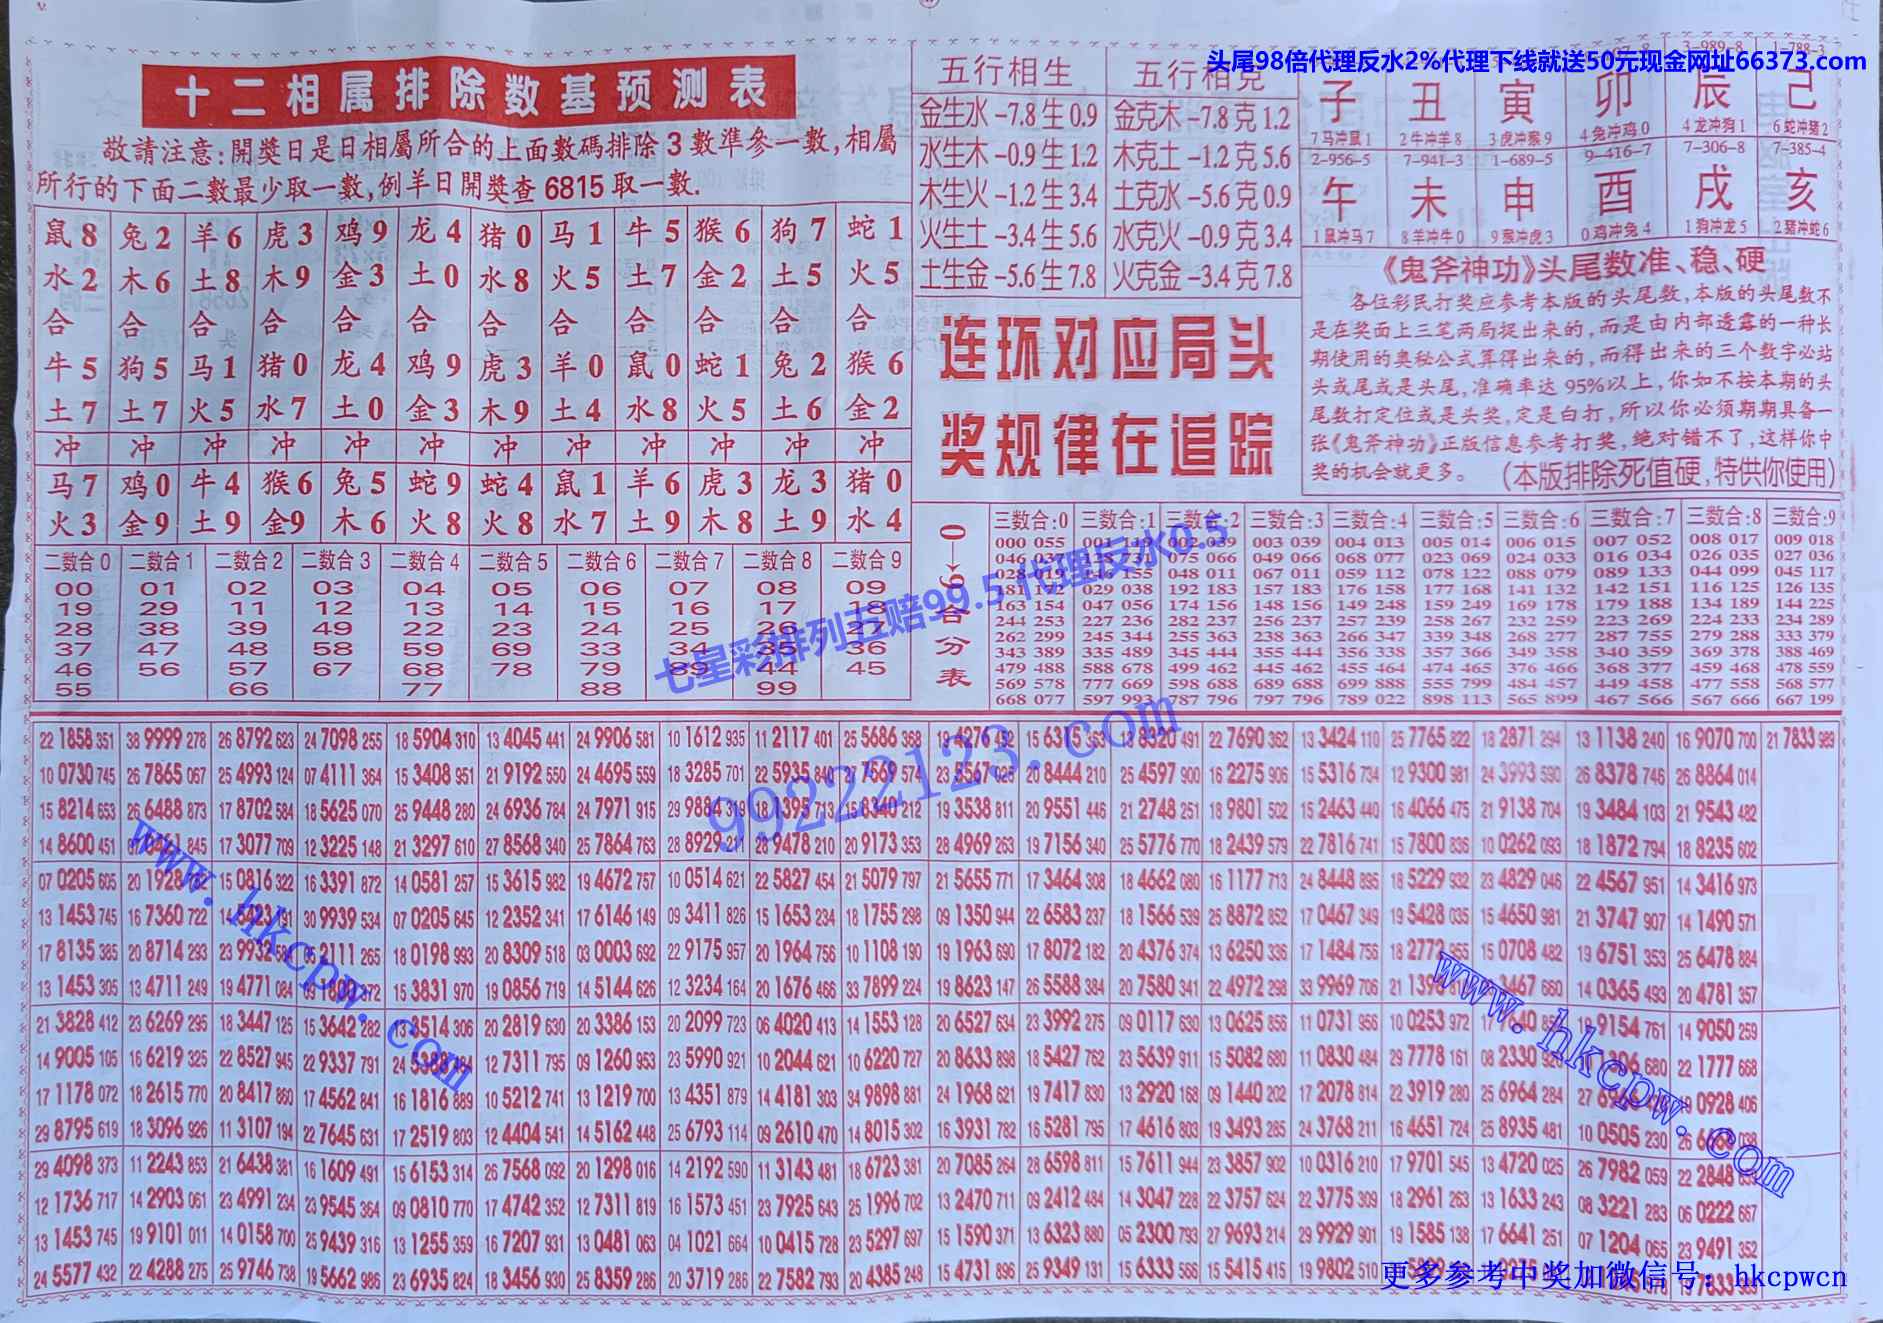 头尾98倍代理反水2%代理下线就送50元现金网址66373.com
十二相属排除数基预测表
敬請注意:開獎日是日相屬所合的上面數碼排除3數準參一數,相屬
所行的下面二數最少取一數,例羊日開獎查6815取一數.
鼠8 兔2 羊6 虎3 鸡9 龙4 猪0 马1 牛5 猴6 狗7 蛇1
水2 木6 土8 木9 金3 土0 水8 火5 土7 金2 土5 火5
合 合 合 合 合 合 合 合 合 合 合 合
牛5 狗5 马1 猪0 龙4 鸡9 虎3 羊0 鼠0 蛇1 兔2 猴6
土7 土7 火5 水7 土0 金3 木9 土4 水8 火5 土6 金2
冲 冲 冲 冲 冲 冲 冲 冲 冲 冲 冲 冲
马7 鸡0 牛4 猴6 兔5 蛇9 蛇4 鼠1 羊6 虎3 龙3 猪0
火3 金9 土9 金9 木6 火8 火8 水7 土9 木8 土9 水4
二数合0 二数合1 二数合2 二数合3 二数合4 二数合5 二数合6 二数合7 二数合8 二数合9
00 01 02 03 04 05 06 07 08 09
19 29 11 12 13 14 15 16 17 18
28 38 39 49 22 23 24 25 26 27
37 47 48 58 59 69 33 34 35 36
46 56 57 67 68 78 79 89 44 45
55 66 77 88 99
五行相生 五行相克
金生水-7.8生0.9 金克木-7.8克1.2
水生木-0.9生1.2 木克土-1.2克5.6
木生火-1.2生3.4 土克水-5.6克0.9
火生土-3.4生5.6 水克火-0.9克3.4
土生金-5.6生7.8 火克金-3.4克7.8
连环对应局头
奖规律在追踪
3-989-8 1-788-3
子 丑 寅 卯 辰 己
7马冲鼠1 2牛冲羊8 3虎冲猴9 4兔冲鸡0 4龙冲狗1 6蛇冲猪2
2-956-5 7-941-3 1-689-5 9-416-7 7-306-8 7-385-4
午 未 申 酉 戌 亥
1鼠冲马7 8羊冲牛0 9猴冲虎3 0鸡冲兔4 1狗冲龙5 2猪冲蛇6
《鬼斧神功》头尾数准、稳、硬
各位彩民打奖应参考本版的头尾数,本版的头尾数不
是在奖面上三笔两局捉出来的,而是由内部透露的一种长
期使用的奥秘公式算得出来的,而得出来的三个数字必站
头或尾或是头尾,准确率达95%以上,你如不按本期的头
尾数打定位或是头奖,定是白打,所以你必须期期具备一
张《鬼斧神功》正版信息参考打奖,绝对错不了,这样你中
奖的机会就更多。(本版排除死值硬,特供你使用)
0→9合分表
三数合:0 三数合:1 三数合:2 三数合:3 三数合:4 三数合:5 三数合:6 三数合:7 三数合:8 三数合:9
000 055 003 039 004 013 005 014 006 015 007 052 008 017 009 018
075 066 049 066 068 077 023 069 024 033 016 034 026 035 027 036
048 011 067 011 059 112 078 122 088 079 089 133 044 099 045 117
181 172 029 038 192 183 157 183 176 158 177 168 141 132 142 151 116 125 126 135
163 154 047 056 174 156 148 156 149 248 159 249 169 178 179 188 134 189 144 225
244 253 227 236 282 237 256 237 257 239 258 267 232 259 223 269 224 233 234 289
262 299 245 344 255 363 238 361 266 347 339 348 268 277 287 755 279 288 333 379
343 389 335 489 345 444 355 444 356 338 357 366 349 358 340 359 369 378 388 469
479 488 588 678 499 462 445 462 455 464 474 465 376 466 368 377 459 468 478 559
569 578 777 669 598 688 689 688 699 888 555 799 484 457 449 458 477 558 568 577
668 077 597 993 787 796 797 796 789 022 898 113 565 899 467 566 567 666 667 199
七星彩排列五赔99.5 代理反水0.5
9922123.com
22 1858 351 38 9999 278 26 8792 623 24 7098 255 18 5904 310 13 4045 441 24 9906 581 10 1612 935 11 2117 401 25 5686 368 22 7690 362 13 3424 110 25 7765 822 18 2871 294 13 1138 240 16 9070 700 21 7833 989
10 0730 745 26 7865 067 25 4993 124 07 4111 364 15 3408 951 21 9192 550 24 4695 559 18 3285 701 20 8444 210 25 4597 900 16 2275 906 15 5316 734 12 9300 981 24 3993 590 26 8378 746 26 8864 014
15 8214 653 26 6488 873 17 8702 584 18 5625 070 25 9448 280 24 6936 784 24 7971 915 19 3538 811 20 9551 446 21 2748 251 18 9801 502 15 2463 440 16 4066 475 21 9138 704 19 3484 103 21 9543 482
14 8600 451 17 3077 709 12 3225 148 21 3297 610 27 8568 340 25 7864 763 28 9478 210 20 9173 353 28 4969 263 19 7156 340 25 5776 770 18 2439 579 22 7816 741 15 7800 836 10 0262 093 18 1872 794 18 8235 602
07 0205 605 15 0816 322 16 3391 872 14 0581 257 15 3615 982 19 4672 757 10 0514 621 22 5827 454 21 5079 797 21 5655 771 17 3464 308 18 4662 080 16 1177 713 24 8448 895 18 5229 932 23 4829 046 22 4567 951 14 3416 973
13 1453 745 16 7360 722 30 9939 534 07 0205 645 12 2352 341 17 6146 149 09 3411 826 15 1653 234 18 1755 298 09 1350 944 22 6583 237 18 1566 539 25 8872 852 17 0467 349 19 5428 035 15 4650 981 21 3747 907 14 1490 571
17 8135 385 20 8714 293 18 0198 993 20 8309 518 03 0003 692 22 9175 957 20 1964 756 10 1108 190 19 1963 690 17 8072 182 20 4376 374 13 6250 336 17 1484 756 18 2772 955 15 0708 482 19 6751 353 25 6478 884
13 1453 305 13 4711 249 19 4771 084 15 3831 970 19 0856 719 14 5144 626 12 3234 164 20 1676 466 33 7899 224 19 8623 147 26 5588 384 20 7580 341 22 4972 298 33 9969 706 14 0365 493 20 4781 357
21 3828 412 23 6269 295 18 3447 125 15 3642 282 13 8514 306 20 2819 630 20 3386 153 20 2099 723 06 4020 413 14 1553 128 20 6527 634 23 3992 275 09 0117 630 13 0625 856 11 0731 956 10 0253 972 14 9050 259
14 9005 105 16 6219 325 22 8527 945 22 9337 791 12 7311 795 09 1260 953 23 5990 921 10 2044 621 10 6220 727 20 8633 898 18 5427 762 23 5639 911 15 5082 680 11 0830 484 29 7778 161 22 1777 668
17 1178 072 18 2615 770 20 8417 860 17 4562 841 16 1816 889 10 5212 741 13 1219 700 13 4351 879 14 4181 303 34 9898 881 24 1968 621 19 7417 830 13 2920 168 09 1440 202 17 2078 814 22 3919 280 25 6964 284
29 8795 619 18 3096 926 11 3107 194 22 7645 631 17 2519 803 12 4404 541 14 5162 448 25 6793 114 09 2610 470 14 8015 302 16 3931 782 16 5281 795 17 4616 803 19 3493 285 24 3768 211 16 4651 724 25 8935 481 10 0505 230
29 4098 373 11 2243 853 21 6438 381 16 1609 491 15 6153 314 26 7568 092 20 1298 016 14 2192 590 11 3143 481 18 6723 381 20 7085 264 28 6598 811 15 7611 944 23 3857 902 10 0316 210 17 9701 545 13 4720 025 26 7982 059
12 1736 717 14 2903 061 23 4991 234 23 9545 364 09 0810 770 17 4742 352 12 7311 819 16 1573 451 23 7925 643 25 1996 702 13 2470 711 09 2412 484 14 3047 228 22 3757 624 22 3775 309 18 2961 263 13 1633 243 08 3221 283 06 0222 667
13 1453 745 19 9101 011 14 0158 700 25 9439 316 13 1255 359 16 7207 931 13 0481 063 04 1021 664 10 0415 728 23 5297 697 15 1590 371 13 6323 880 05 2300 793 27 9693 214 29 9929 901 19 1585 138 17 6641 251 07 1204 065 23 9491 352
24 5577 432 22 4288 275 25 9746 738 19 5662 986 23 6935 824 18 3456 930 25 8359 286 20 3719 286 22 7582 793 20 4385 248 15 4731 896 25 9349 131 15 6333 566 15 5415 415 19 9802 510
www.hkcpw.com
www.hkcpw.com
更多参考中奖加微信号：hkcpwcn